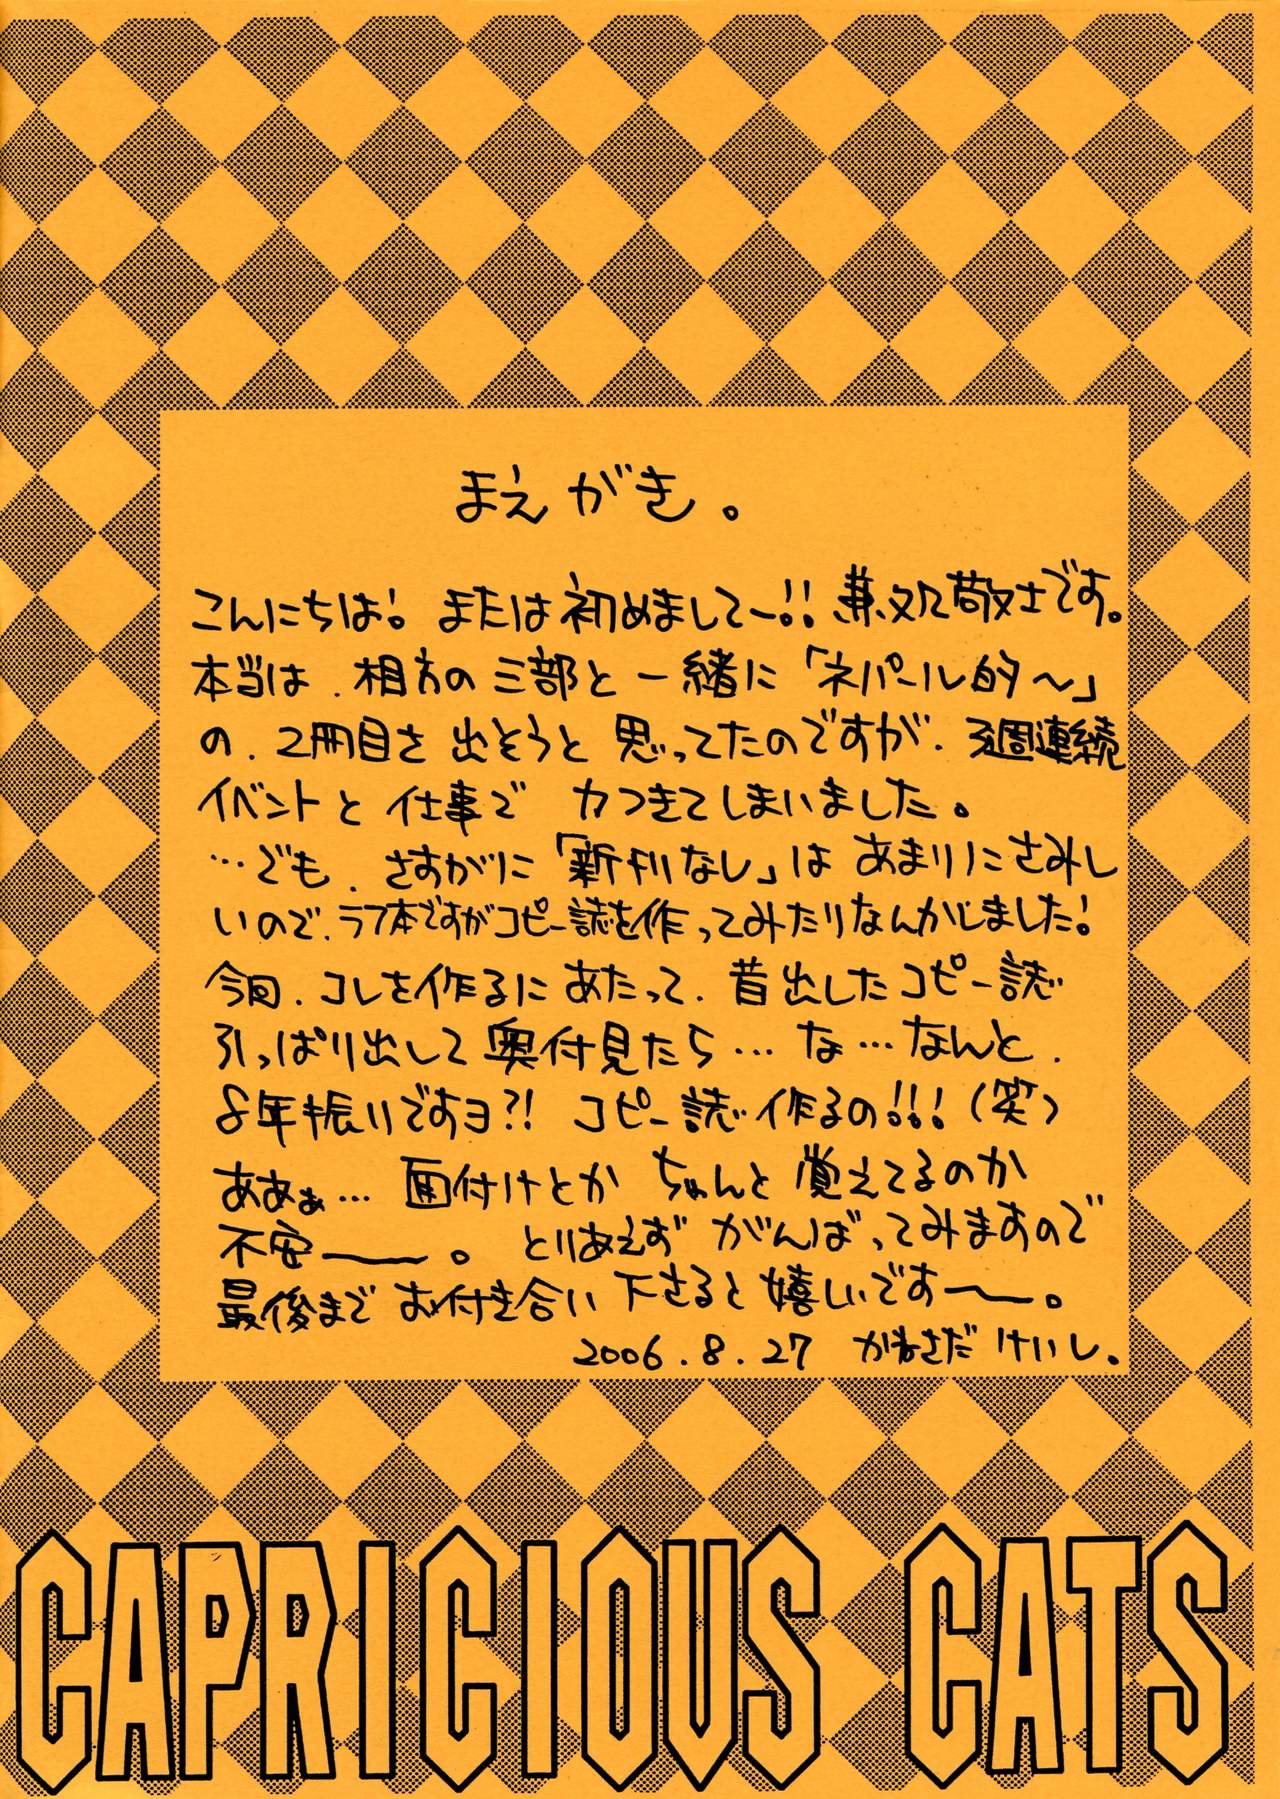 まえがき。
こんにちは! または初めましてー!! 兼処敬士です。
本当は、相方の三部と一緒に「ネパール的〜」
の、2冊目を出そうと思ってたのですが、3週連続
イベントと仕事で力つきてしまいました。
…でも、さすがに「新刊なし」はあまりにさみし
いので、ラフ本ですがコピー誌を作ってみたりなんかしました!
今回、コレを作るにあたって、昔出したコピー誌
引っぱり出して奥付見たら…な…なんと、
8年振りですヨ?! コピー誌作るの!!!(笑)
ああぁ…面付けとかちゃんと覚えてるのか
不安——。とりあえずがんばってみますので
最後までお付き合い下さると嬉しいです〜。
2006.8.27 かねさだ けいし。
CAPRICIOUS CATS